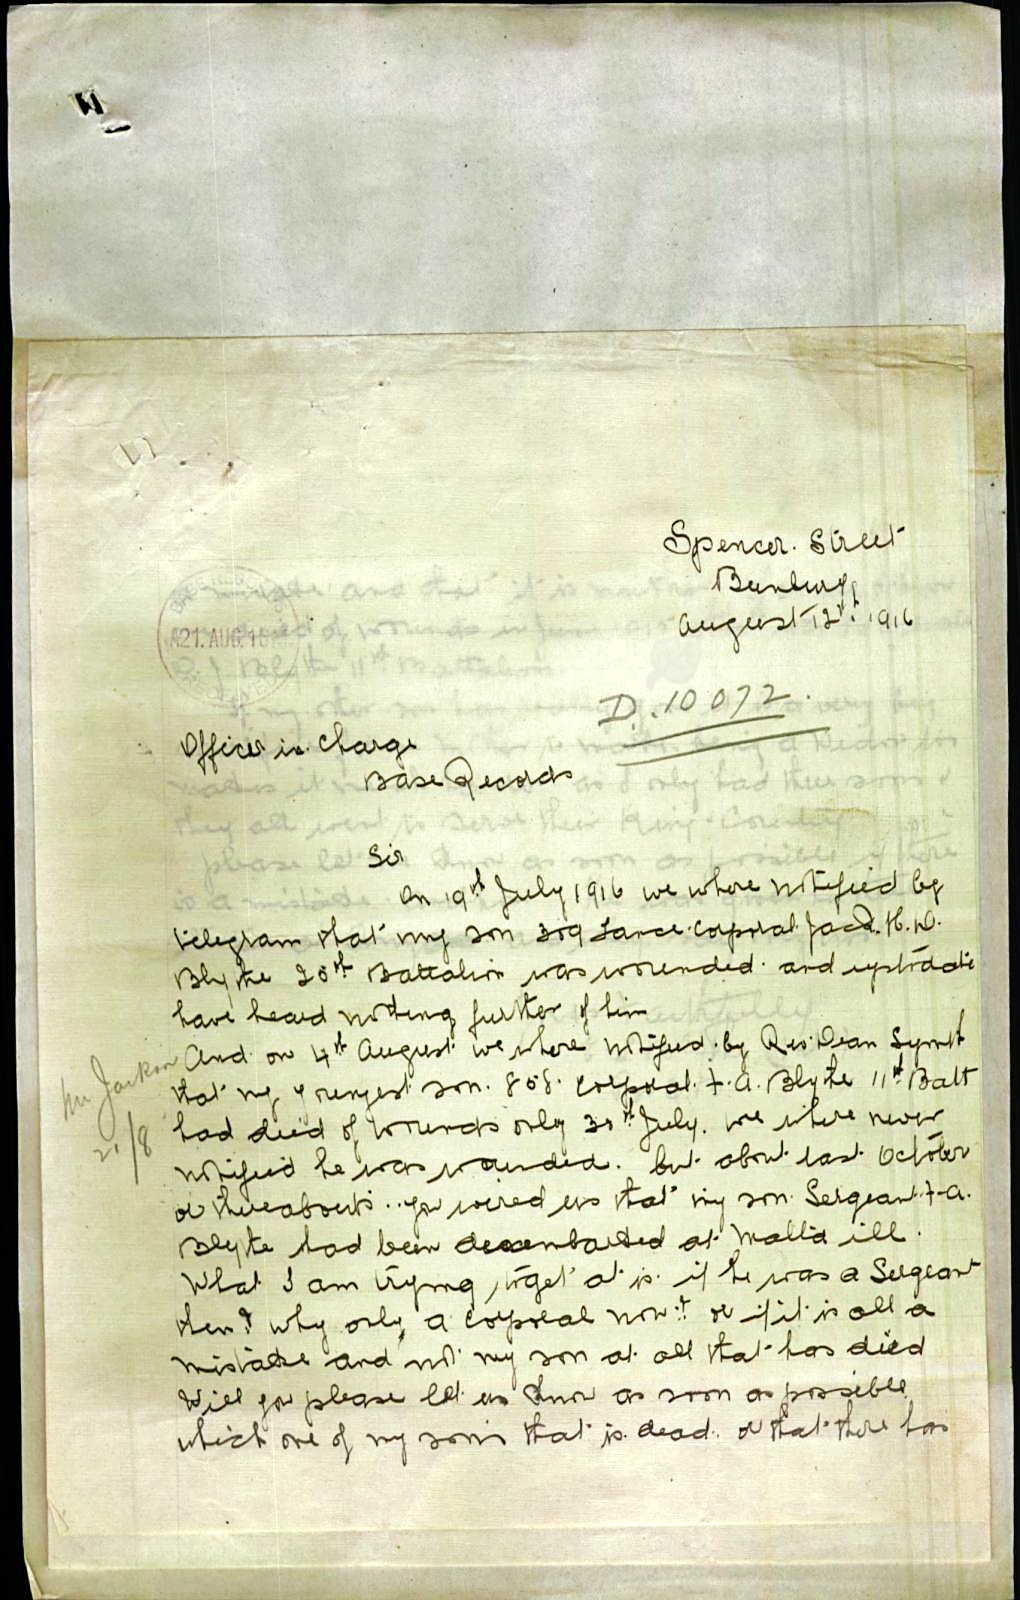 Spencer. Street
Bunbury
August 12th. 1916
A21. AUG. 16
D. 10072.
Officer in Charge
Base Records
Sir
On 19th July 1916 we where notified by
telegram that my son 309 Lance. Corporal. Jack. H. W.
Blythe 28th Battalion was wounded. and up to date
have heard nothing further of him
And on 4th August we where notified by Rev. Dean
that my youngest son. 858. Corporal. F. A. Blythe 11th Batt
had died of wounds only 30th July. we where never
notified he was wounded. but about last October
or thereabouts.. you wired us that my son Sergeant F. A.
Blythe had been disembarked at Malta ill.
What I am trying to get at is. if he was a Sergeant
then? why only a Corporal now? or if it is all a
mistake and not my son at all that has died
Will you please let us know as soon as possible
which one of my sons that is dead. or that there has
Mr Jackson
21/8